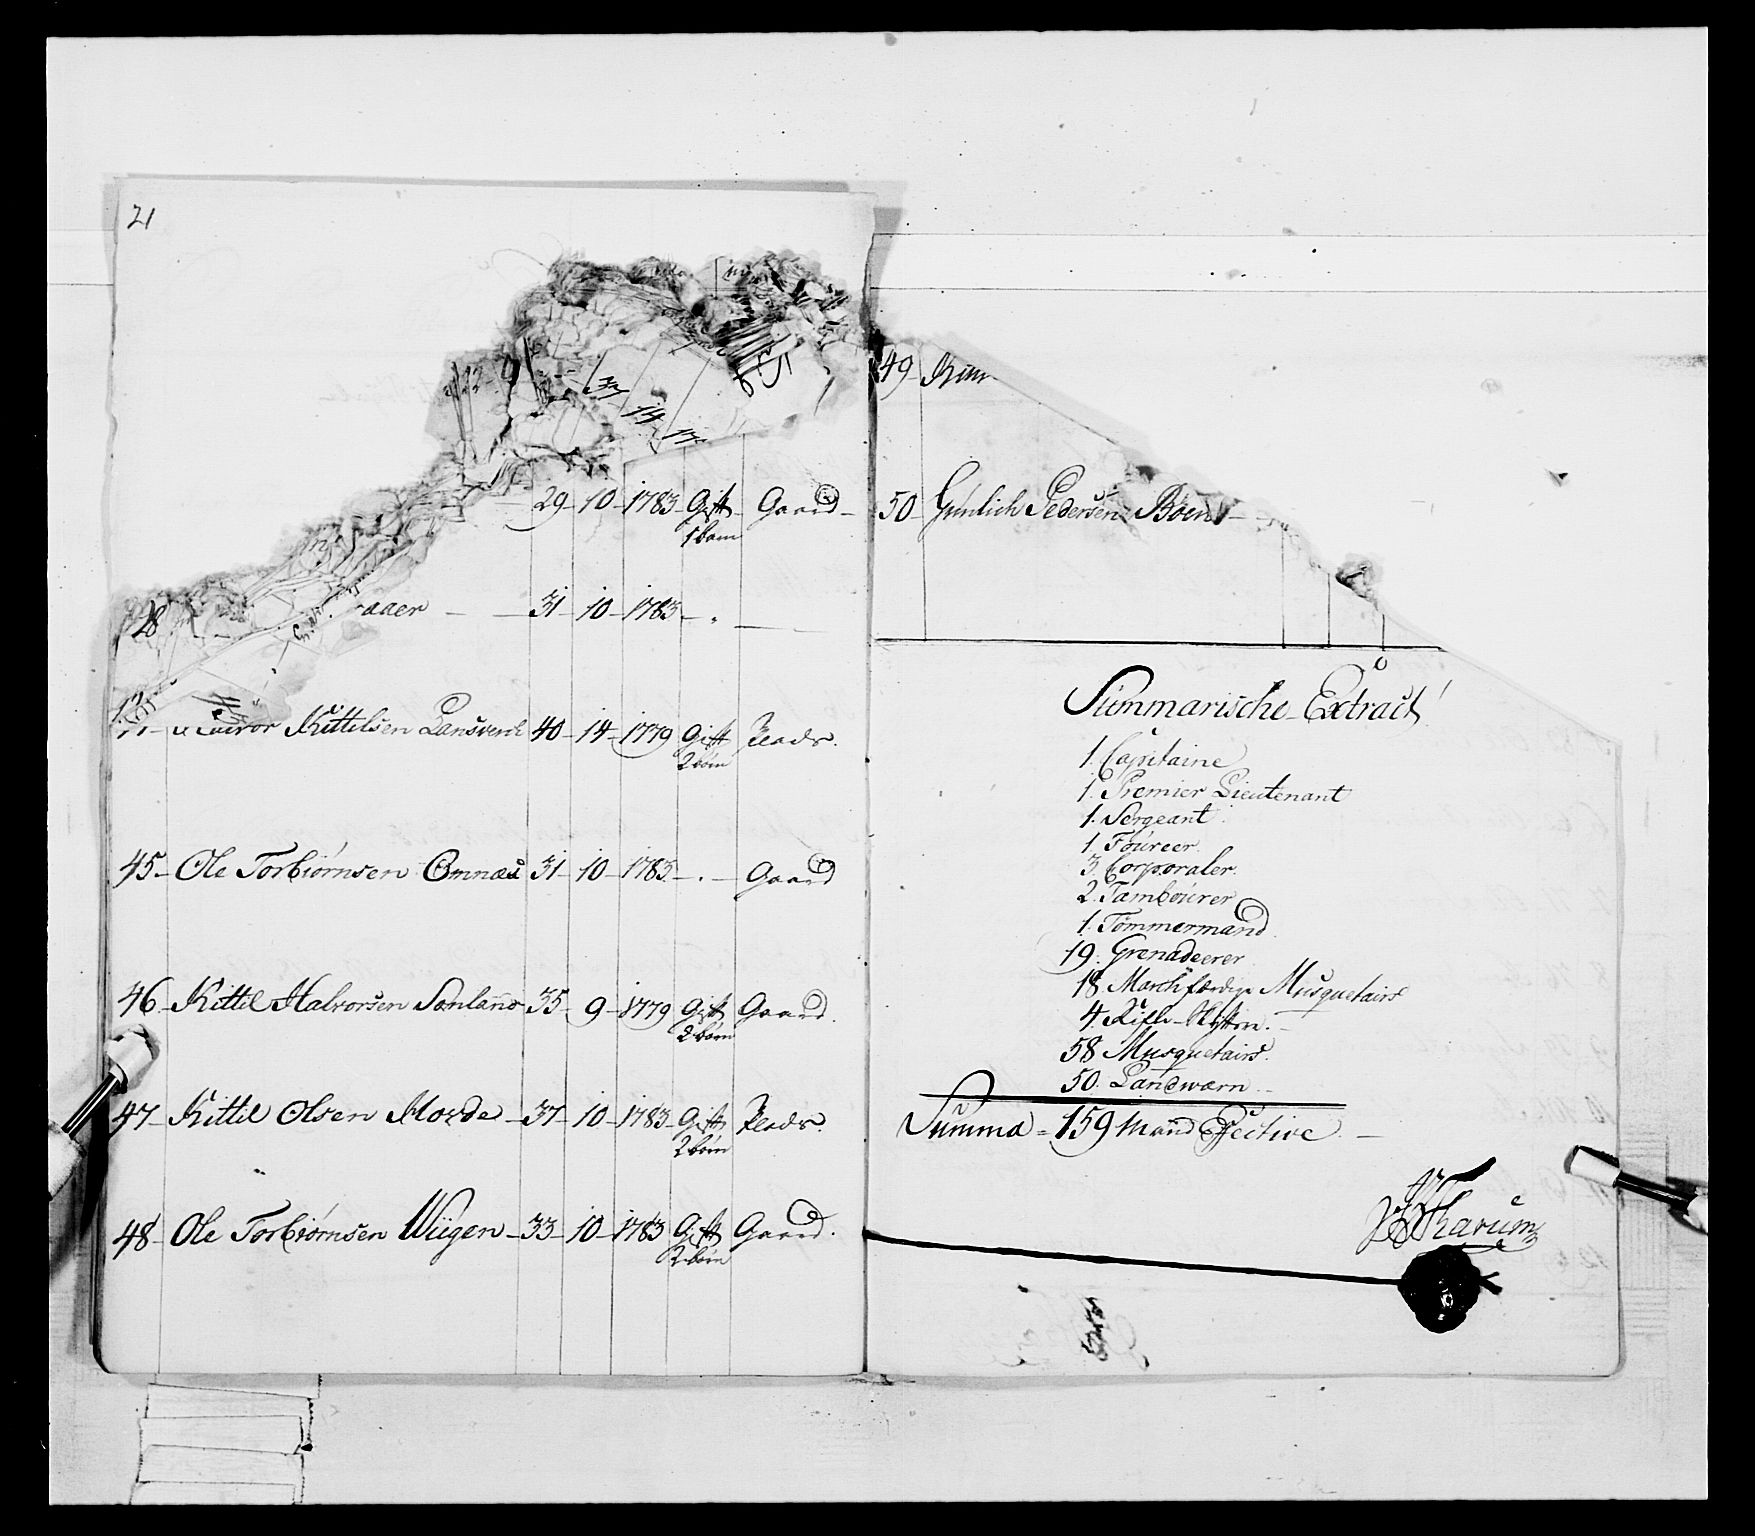 21
33 14 17
29 - 10 - 1783 - Gift - Gaard -
1 barn
28
aaer - 31 - 10 - 1783 - . -
Kittilsen Lansverck 40 - 14 - 1779 Gift Plads.
2 börn
45 - Ole Torbiørnsen Omnæs 31 - 10 - 1783 - . - Gaard
46 - Kittil Halvorsen Sonland 35 - 9 - 1779 Gift Gaard.
2 börn
47 - Kittil Olsen Moede - 37 - 10 - 1783 - Gift Plads.
2 börn
48 - Ole Torbiørnsen Wiigen - 33 - 10 - 1783 Gift Gaard.
2 börn
49
50 - Gunlich Pedersen Böen -
Summarische Extract
1. Capitaine
1. Premier Lieutenant
1. Sergeant.
1. Foureer.
3. Corporaler.
2. Tambourer
1. Tømmermand.
19. Grenadeerer
18. Marchfærdige Musquetairs
4. Rifle-Skytter.
58 Musquetairs.
50. Landwærn. -
Summa = 159 Mand Effective. -